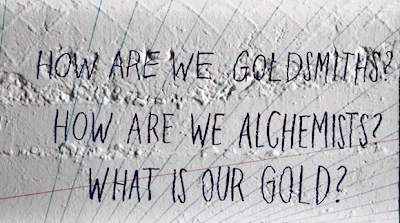 HOW ARE WE GOLDSMITHS?
HOW ARE WE ALCHEMISTS?
WHAT IS OUR GOLD?